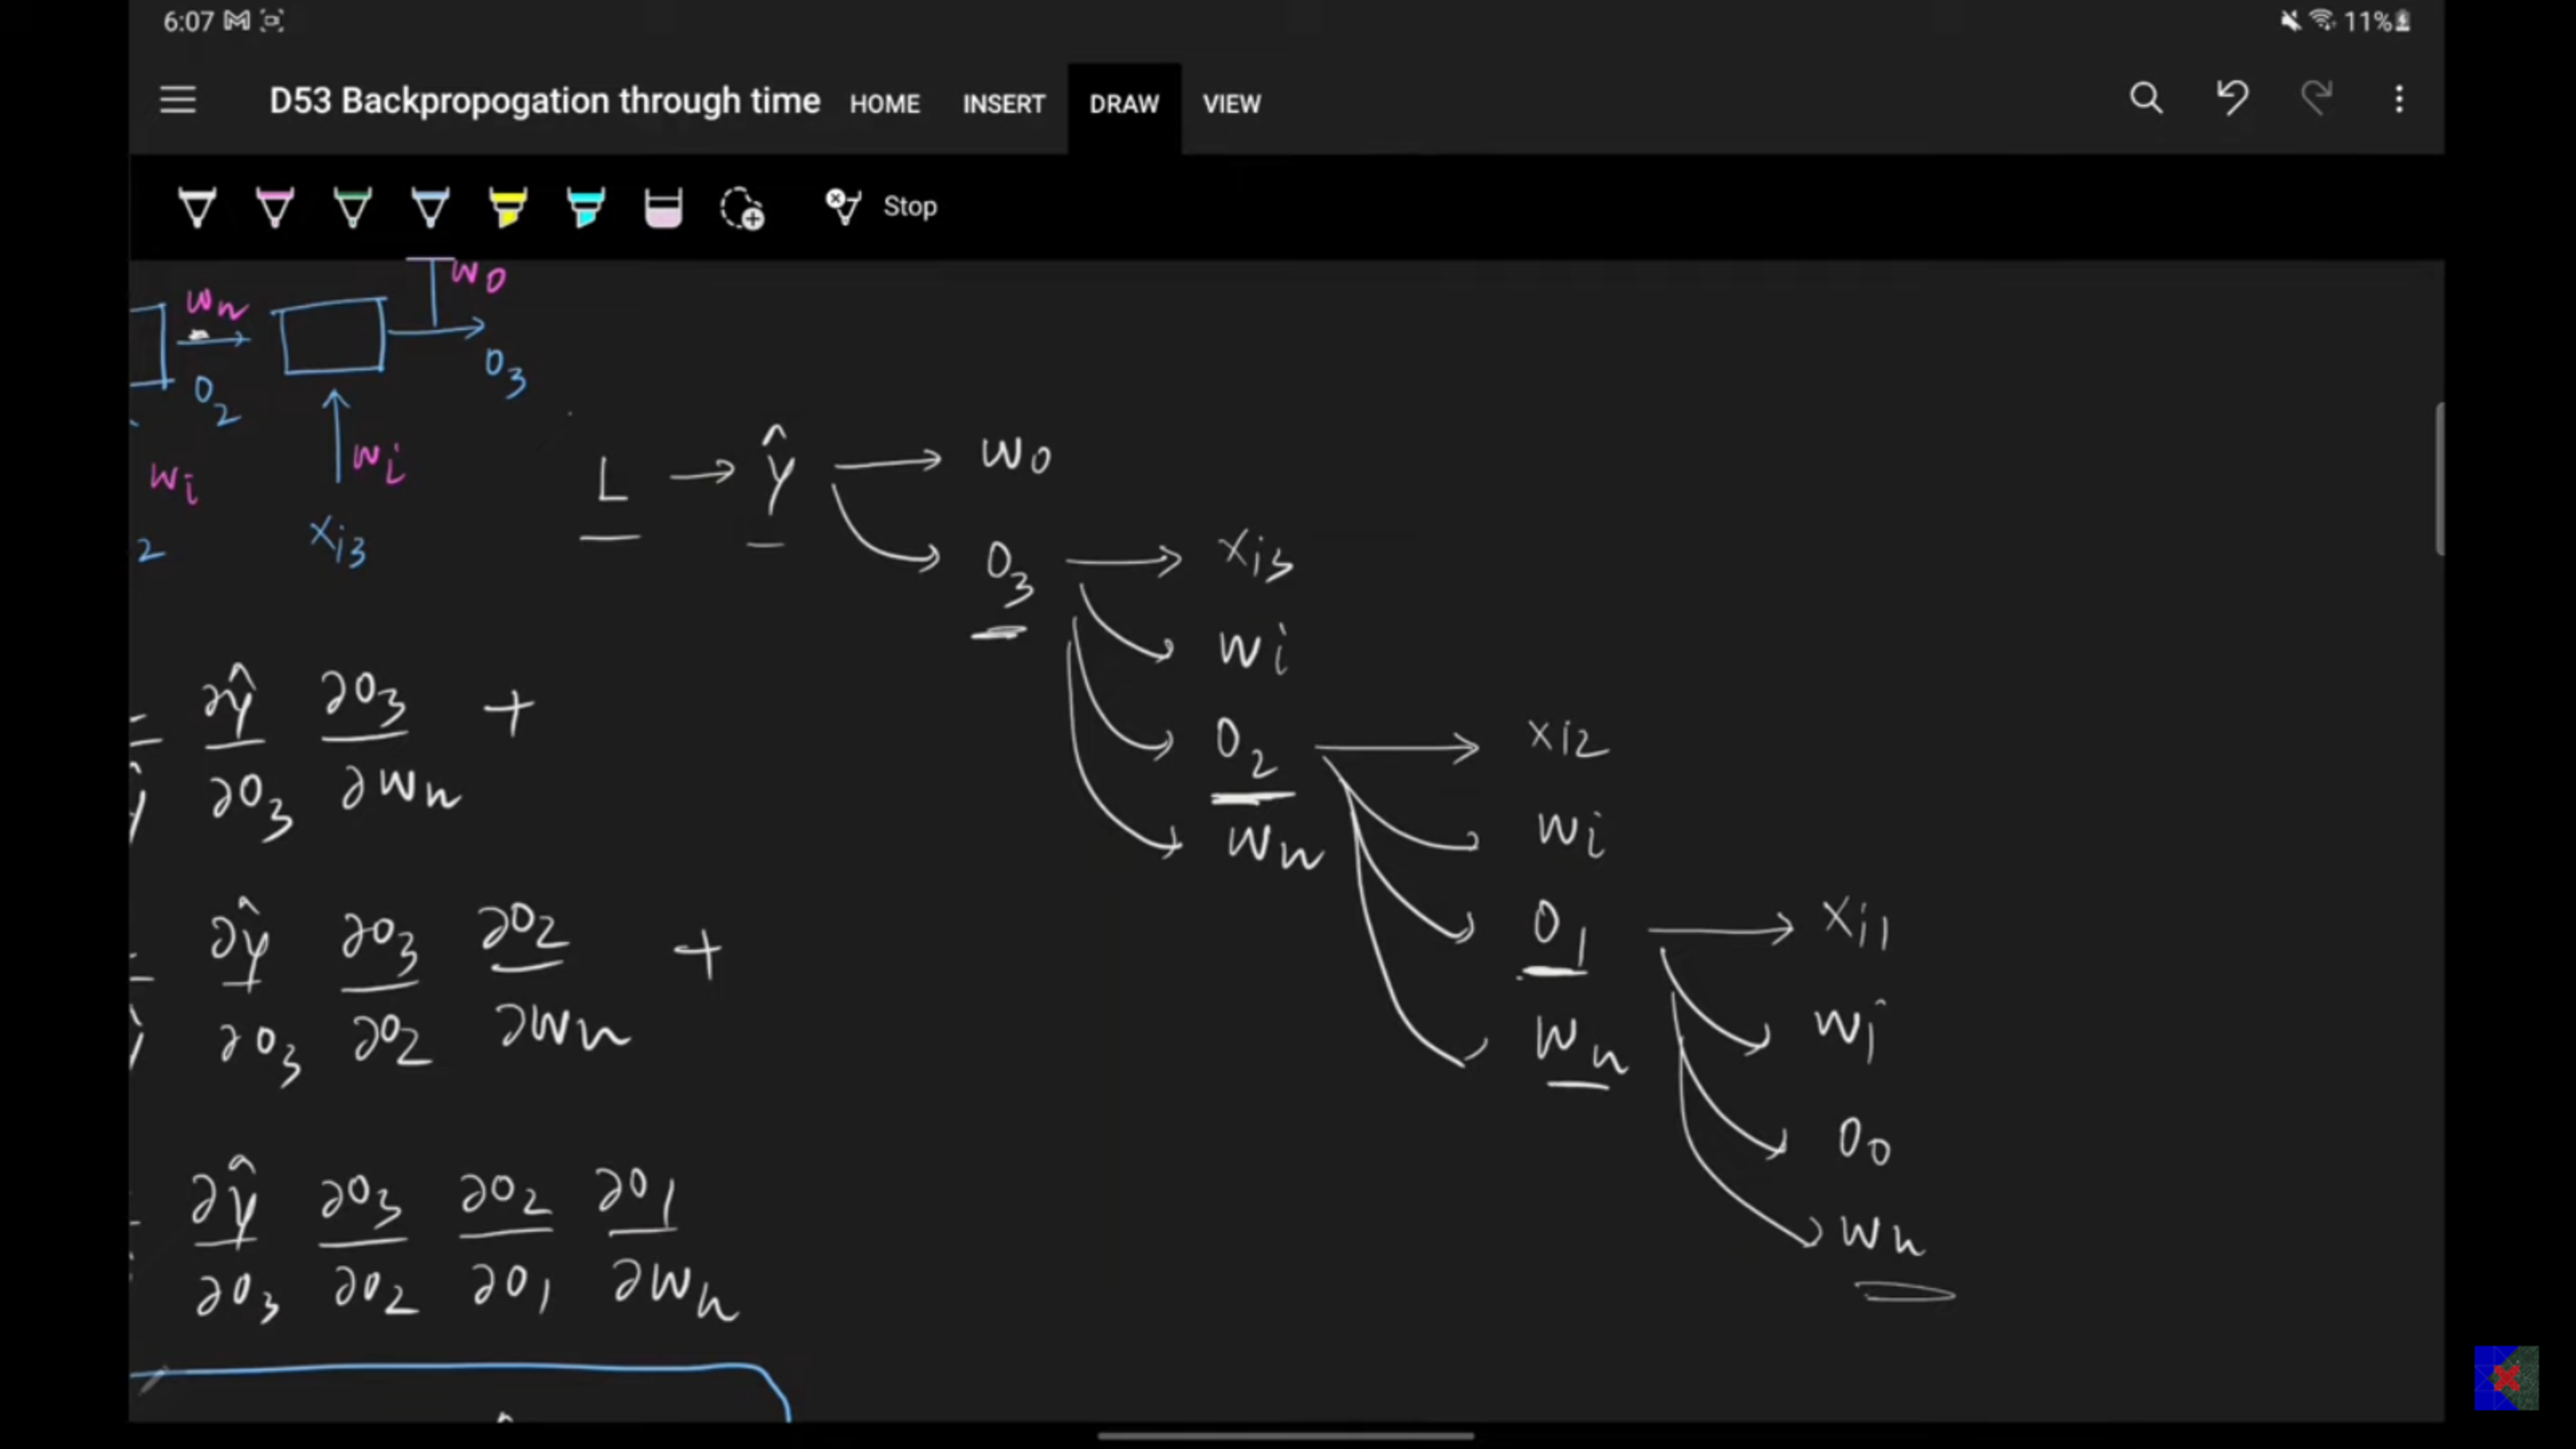 6:07 11%
D53 Backpropogation through time HOME INSERT DRAW VIEW
Stop
wn wo
o2 o3
wi wi
2 xi3
L → ŷ → wo
o3 → xi3
wi
o2 → xi2
wn
wi
o1 → xi1
wn
wi
o0
wn
∂ŷ/∂o3 ∂o3/∂wn +
∂ŷ/∂o3 ∂o3/∂o2 ∂o2/∂wn +
∂ŷ/∂o3 ∂o3/∂o2 ∂o2/∂o1 ∂o1/∂wn